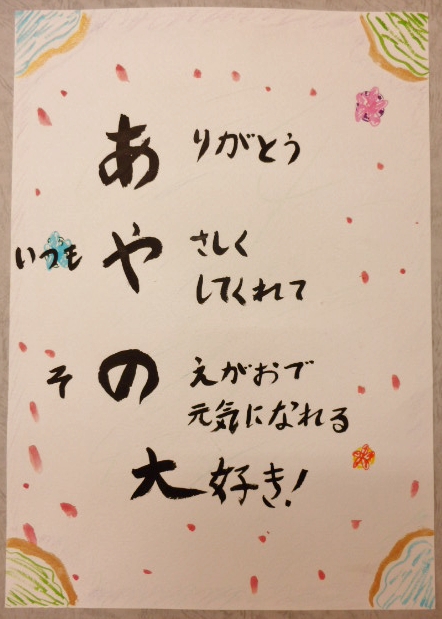 ありがとう
いつもやさしく
してくれて
そのえがおで
元気になれる
大好き!